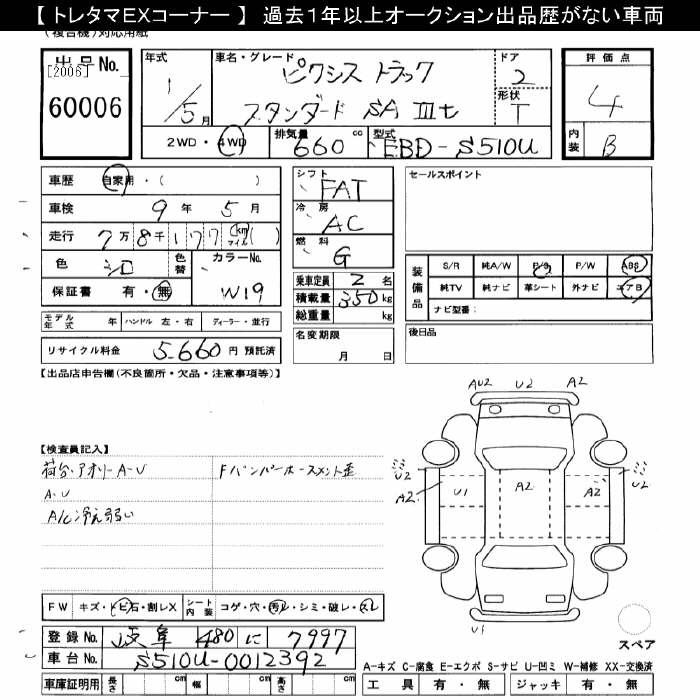 【 トレタマEXコーナー 】 過去1年以上オークション出品歴がない車両
(複合機)対応用紙
出品No.
[2006]
60006
年式
1/5月
車名・グレード
ピクシス トラック
スタンダード SA Ⅲt
ドア
2
形状
T
評価点
4
内装
B
2WD・4WD
排気量
660cc
型式
EBD-S510U
車歴 自家用・( )
車検 9年 5月
走行 7万 8千 177 km マイル ( )
色 シロ
色替
カラーNo.
W19
保証書 有・無
シフト
FAT
冷房
AC
燃料
G
乗車定員 2名
積載量 350kg
総重量 kg
セールスポイント
装備品
S/R 純A/W P/S P/W ABS
純TV 純ナビ 革シート 外ナビ エアB
ナビ型番:
モデル年式 年 ハンドル 左・右 ディーラー・並行
リサイクル料金 5,660円 預託済
名変期限
月 日
後日品
【出品店申告欄(不良箇所・欠品・注意事項等)】
AU2 U2 A2
【検査員記入】
荷台・アオリーA・U
A・U
A/C冷え弱い
Fバンパーホースメント歪
U2 A2
U1 A2 A2
U2
U1
FW キズ・トビ石・割レX
シート内装 コゲ・穴・汚レ・シミ・破レ・スレ
登録No. 岐阜 480 に 7997
車台No. S510U-0012392
車庫証明用 長さ cm 幅 cm 高さ cm
スペア
A-キズ C-腐食 E-エクボ S-サビ U-凹ミ W-補修 XX-交換済
工具 有・無 ジャッキ 有・無